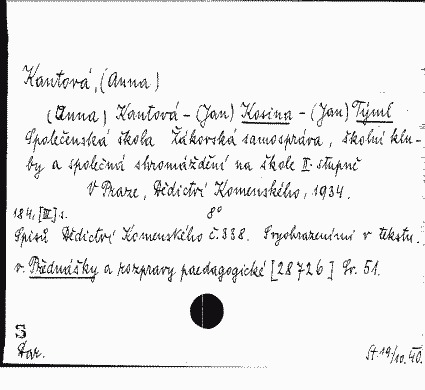 Kantová, (Anna)
(Anna) Kantová - (Jan) Kosina - (Jan) Týml
Společenská škola Žákovská samospráva, školní klu-
by a společná shromáždění na škole II. stupně
V Praze, Dědictví Komenského, 1934.
184, [III] s. 8°
Spisů Dědictví Komenského č. 338. S vyobrazeními v textu.
v. Přednášky a rozpravy paedagogické [28726] Sv. 51.
S
Dar.
St. 19/10. 40.